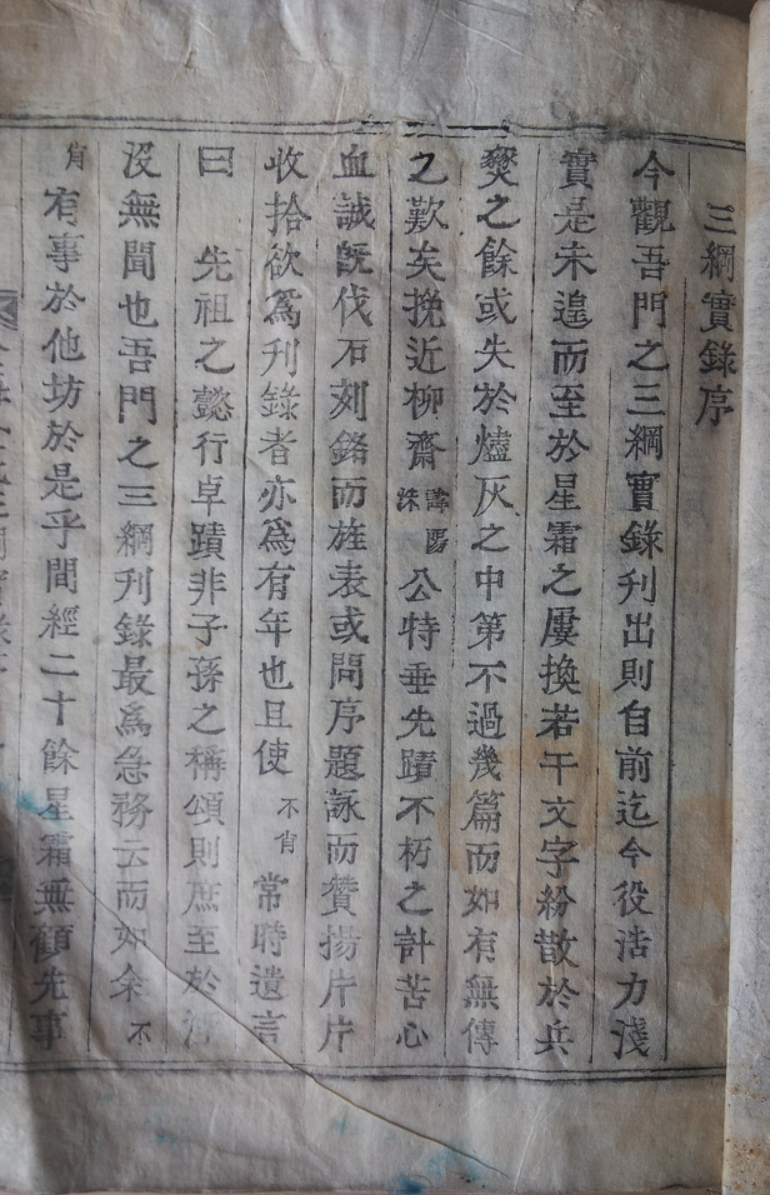 三綱實錄序
今觀吾門之三綱實錄刋出則自前迄今役浩力淺
實是未遑而至於星霜之屢換若干文字紛散於兵
燹之餘或失於燼灰之中第不過幾篇而如有無傳
之歎矣挽近柳齋諱洙公特垂先蹟不朽之計苦心
血誠旣伐石刻銘而旌表或問序題詠而贊揚片片
收拾欲爲刋錄者亦爲有年也且使不肖常時遺言
曰先祖之懿行卓蹟非子孫之稱頌則庶至於
沒無聞也吾門之三綱刋錄最爲急務云而如余不
肖有事於他坊於是乎間經二十餘星霜無顧先事